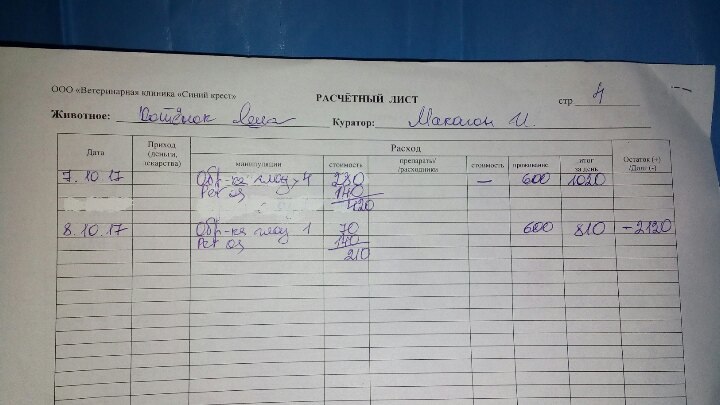 ООО «Ветеринарная клиника «Синий крест»
РАСЧЁТНЫЙ ЛИСТ стр 4
Животное: Котёнок Куратор: Макагон И.
Дата Приход (деньги, лекарства) Расход Остаток (+) /Долг (-)
манипуляции стоимость препараты/ /расходники стоимость проживание итог за день
7.10.17 Обр-ка глаз 4 280 — 600 1020
Рек оз 140
420
8.10.17 Обр-ка глаз 1 70 600 810 -2120
Рек оз 140
210